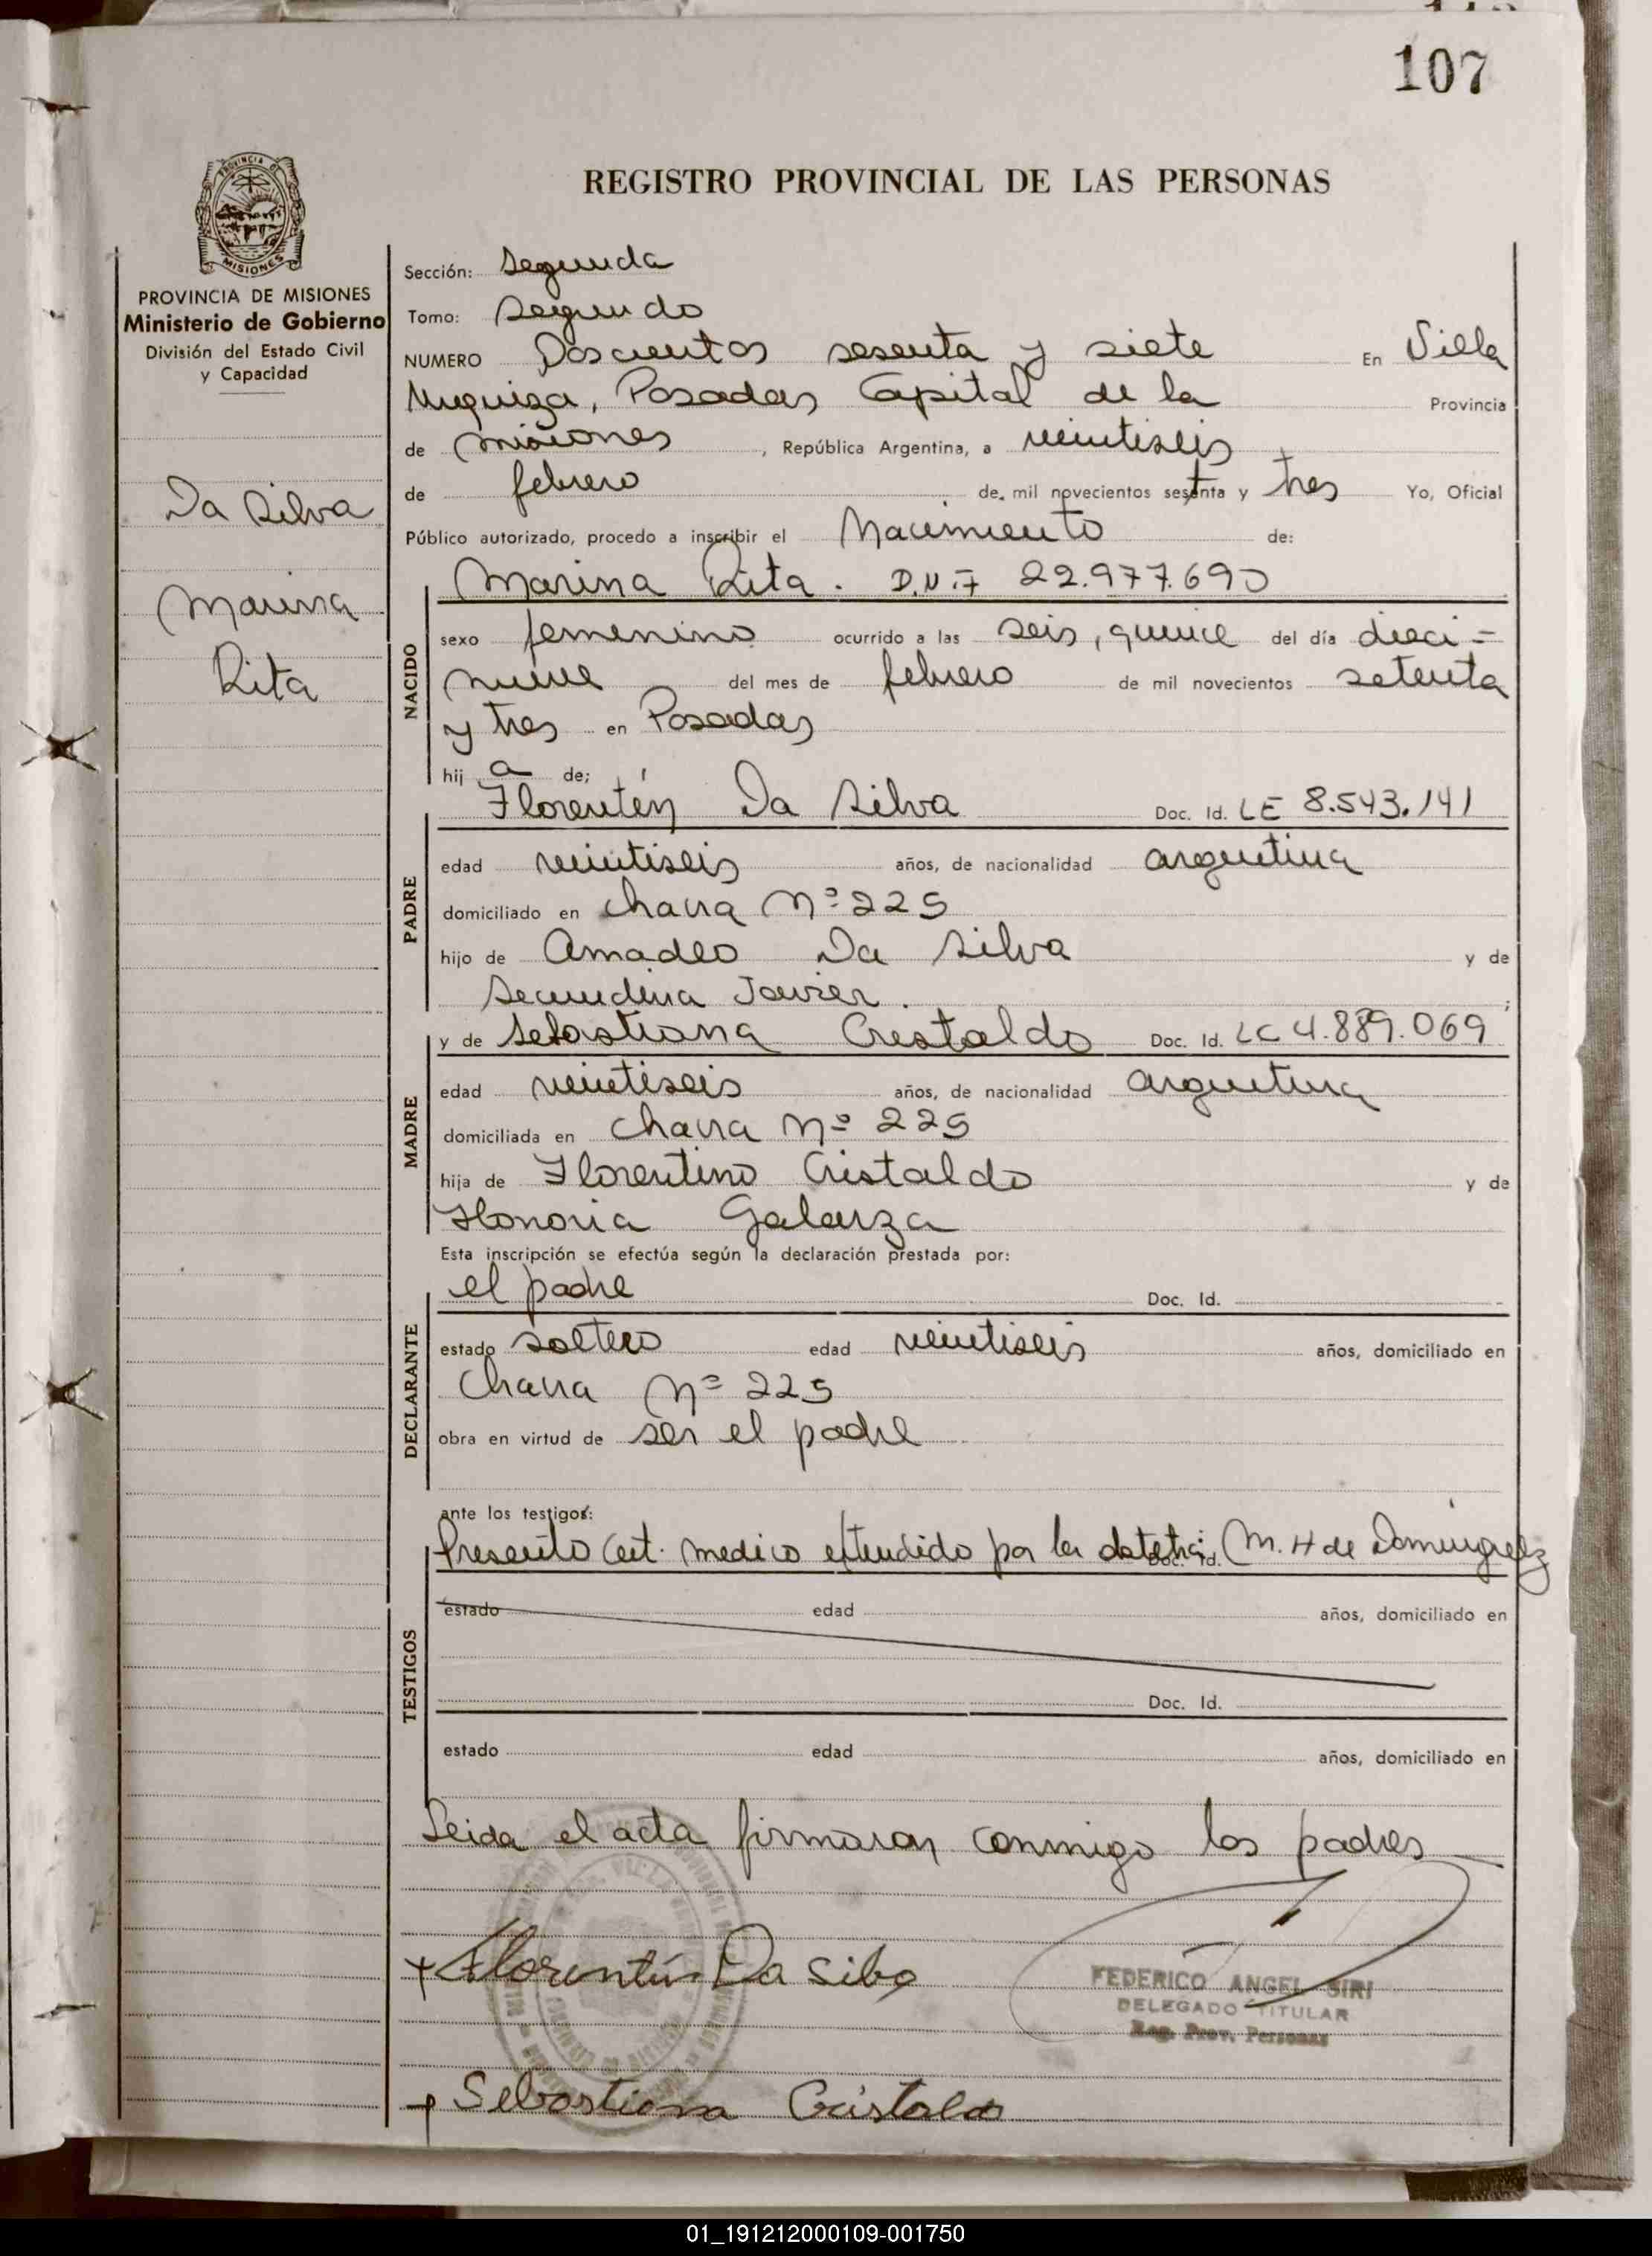 107
REGISTRO PROVINCIAL DE LAS PERSONAS
PROVINCIA DE
MISIONES
PROVINCIA DE MISIONES
Ministerio de Gobierno
División del Estado Civil
y Capacidad
Da Silva
Marina
Rita
Sección: Segunda
Tomo: Segundo
NUMERO Doscientos sesenta y siete En Villa
Urquiza, Posadas Capital de la Provincia
de Misiones, República Argentina, a veintiseis
de febrero de mil novecientos setenta y tres Yo, Oficial
Público autorizado, procedo a inscribir el Nacimiento de:
NACIDO
Marina Rita. D.N.I 22.977.690
sexo femenino ocurrido a las seis, quince del día dieci=
nueve del mes de febrero de mil novecientos setenta
y tres en Posadas
hij a de;
PADRE
Florentín Da Silva Doc. Id. LE 8.543.141
edad veintiseis años, de nacionalidad argentina
domiciliado en Chacra Nº 225
hijo de Amadeo Da Silva y de
Secundina Javier.;
MADRE
y de Sebastiana Cristaldo Doc. Id. LC 4.889.069
edad veintiseis años, de nacionalidad argentina
domiciliada en Chacra Nº 225
hija de Florentino Cristaldo y de
Honoria Galarza
Esta inscripción se efectúa según la declaración prestada por:
DECLARANTE
el padre Doc. Id.
estado soltero edad veintiseis años, domiciliado en
Chacra Nº 225
obra en virtud de ser el padre
ante los testigos:
TESTIGOS
Presento Cert. medico extendido por la obstetra: M. H de Dominguez
Doc. Id.
estado edad años, domiciliado en
Doc. Id.
estado edad años, domiciliado en
Leida el acta firmaron conmigo los padres
+ Florentín Da Silva
FEDERICO ANGEL SIRI
DELEGADO TITULAR
Reg. Prov. Personas
+ Sebastiana Cristaldo
01_191212000109-001750